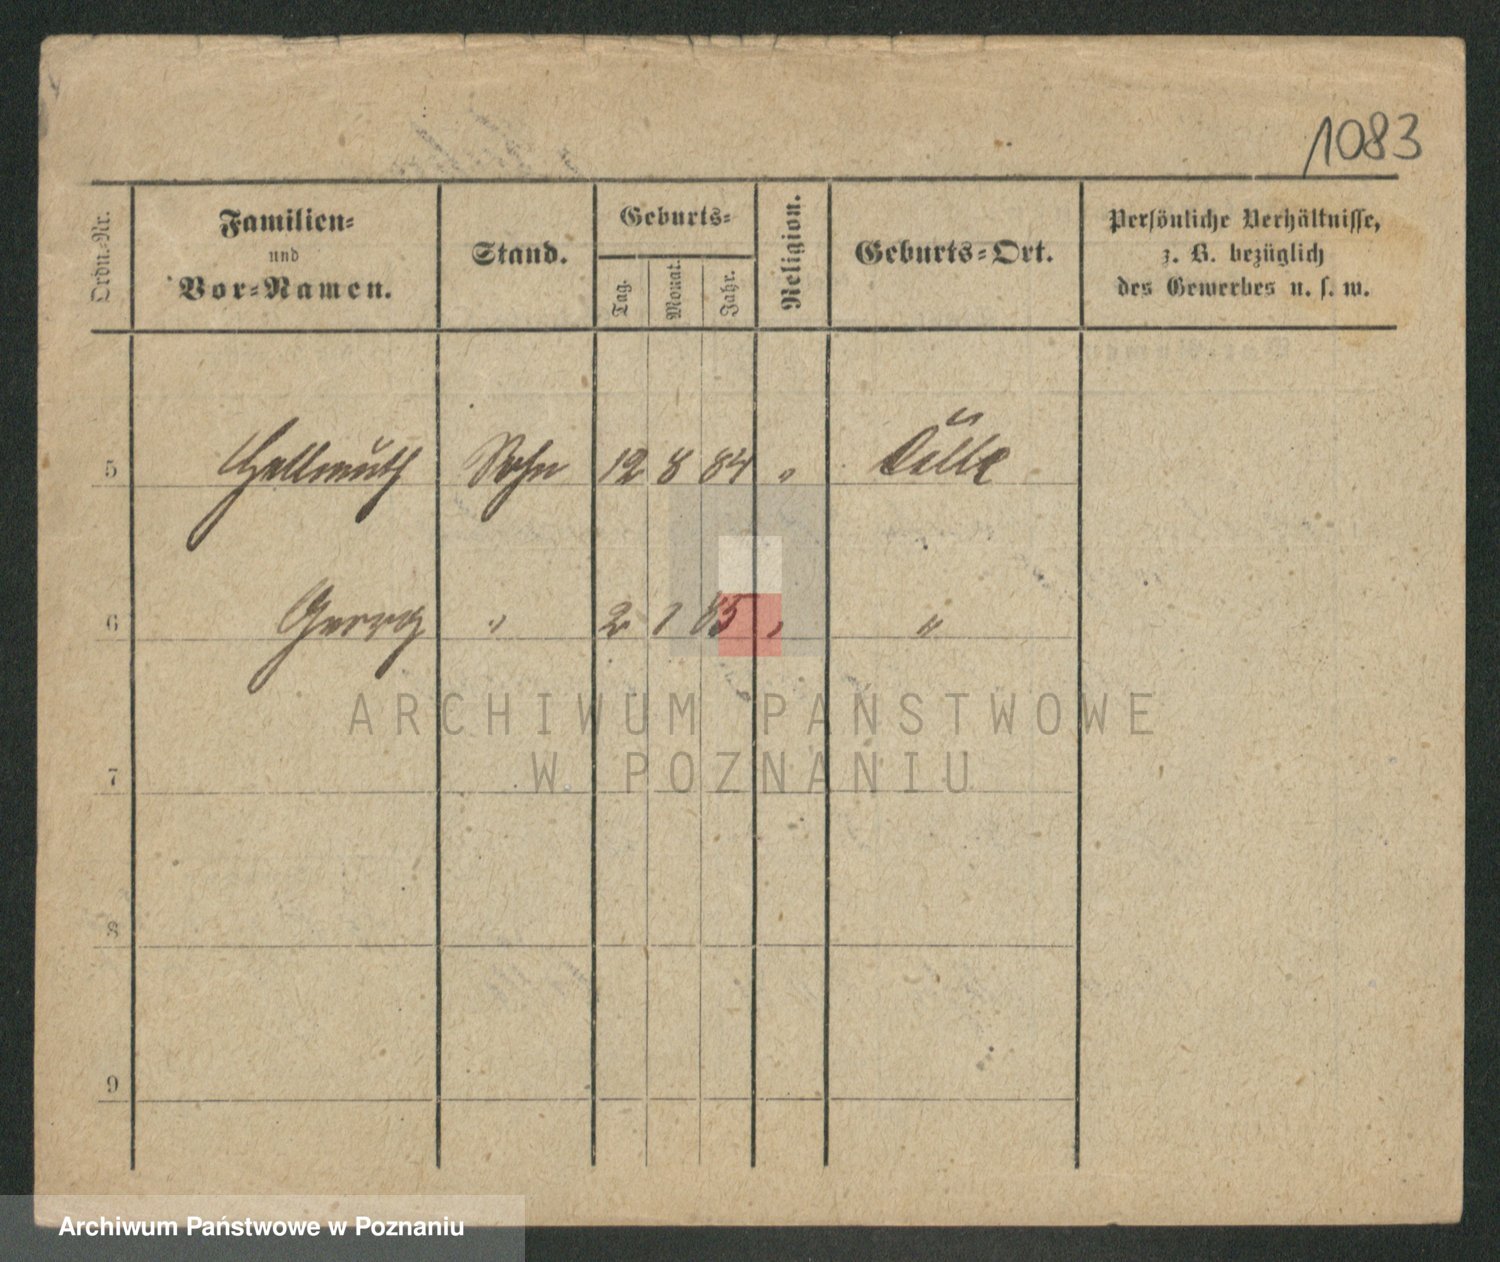 1083
Ordn.-Nr.
Familien-
und
Vor-Namen.
Stand.
Geburts-
Tag.
Monat.
Jahr.
Religion.
Geburts-Ort.
Persönliche Verhältnisse,
z. B. bezüglich
des Gewerbes u. s. w.
5 Hellmuth Sohn 12 8 84 "
6 Georg " 2 1 85 " "
ARCHIWUM PAŃSTWOWE
W POZNANIU
7
8
9
Archiwum Państwowe w Poznaniu